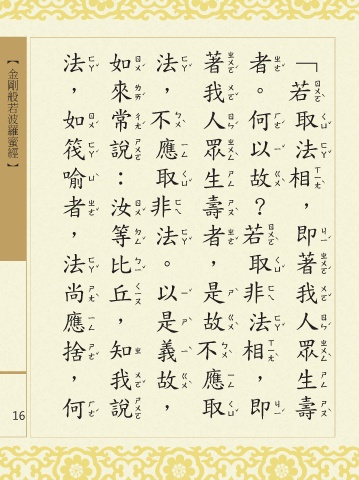 「若取法相，即著我人眾生壽
者。何以故？若取非法相，即
著我人眾生壽者，是故不應取
法，不應取非法。以是義故，
如來常說：汝等比丘，知我說
法，如筏喻者，法尚應捨，何
【金剛般若波羅蜜經】
16